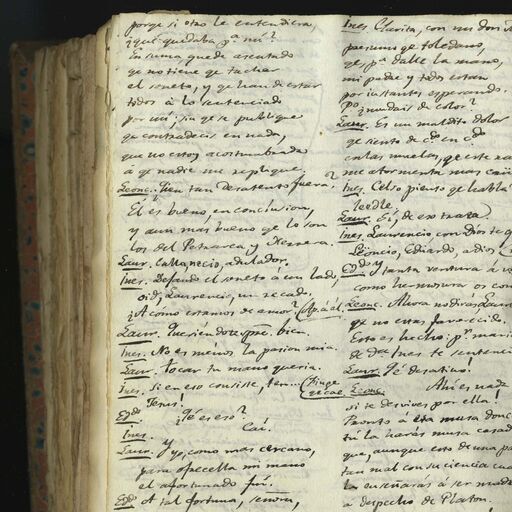 porqe si otro le entendiera,
¿qué quedaba pa. mí?
En suma quede asentado
qe no tiene qe tachar
el soneto, y qe han de estar
todos á lo sentenciado
por mí, sin qe se publique
qe contradecis en nada,
que no estoy acostumbrada
á qe nadie me replique.
Leonc. ¿Quien tan desatento fuera?
El es bueno en conclusion,
y aun mas bueno qe lo son
los del Petrarca y Herrera.
Laur. Calla, necio, adulador.
Ines. Dejando el soneto á un lado,
oid, Laurencio, un recado.
¿A como estamos de amor? (Ap. á él.)
Laur. Queriendote, pre. bien
Ines. No es menos la pasion mia.
Laur. Tocar tu mano queria.
Ines. Si en eso consiste, ten... (Finge qe cae.
Jesus!
Edo. ¿Qé es eso?
Ines. Caí.
Laur. Y yo, como mas cercano,
para ofrecella mi mano
el afortunado fuí.
Edo. A tal fortuna, señora,
Ines Clarita, con un don
presumo qe toledano,
qe, pa. dalle la mano,
mi padre y todos estan
por instantes esperando.
Po. ¿mudais de color?
Laur. Es un maldito dolor
qe siento de
en las muelas, qe este
me atormenta mas
Ines. Celio pienso qe
leedle.
Laur. Sí, de eso trata.
Ines Laurencio con Dios te
Leoncio, Eduardo, a dios
Edo. Y tanta ventura á
como hermosura os
Leonc. Ahora no diras Laur
qe no estas favorecido.
Esto es hecho: pa.
de da. Ines te
Laur. Qé desatino.
Leonc. Ahí es nada
si te desvives por ella!
Pronto á esta musa
tu la harás musa casad
que, aunque esto de una
tan mal con su ciencia
la enseñarás á ser
á despecho de Platon.